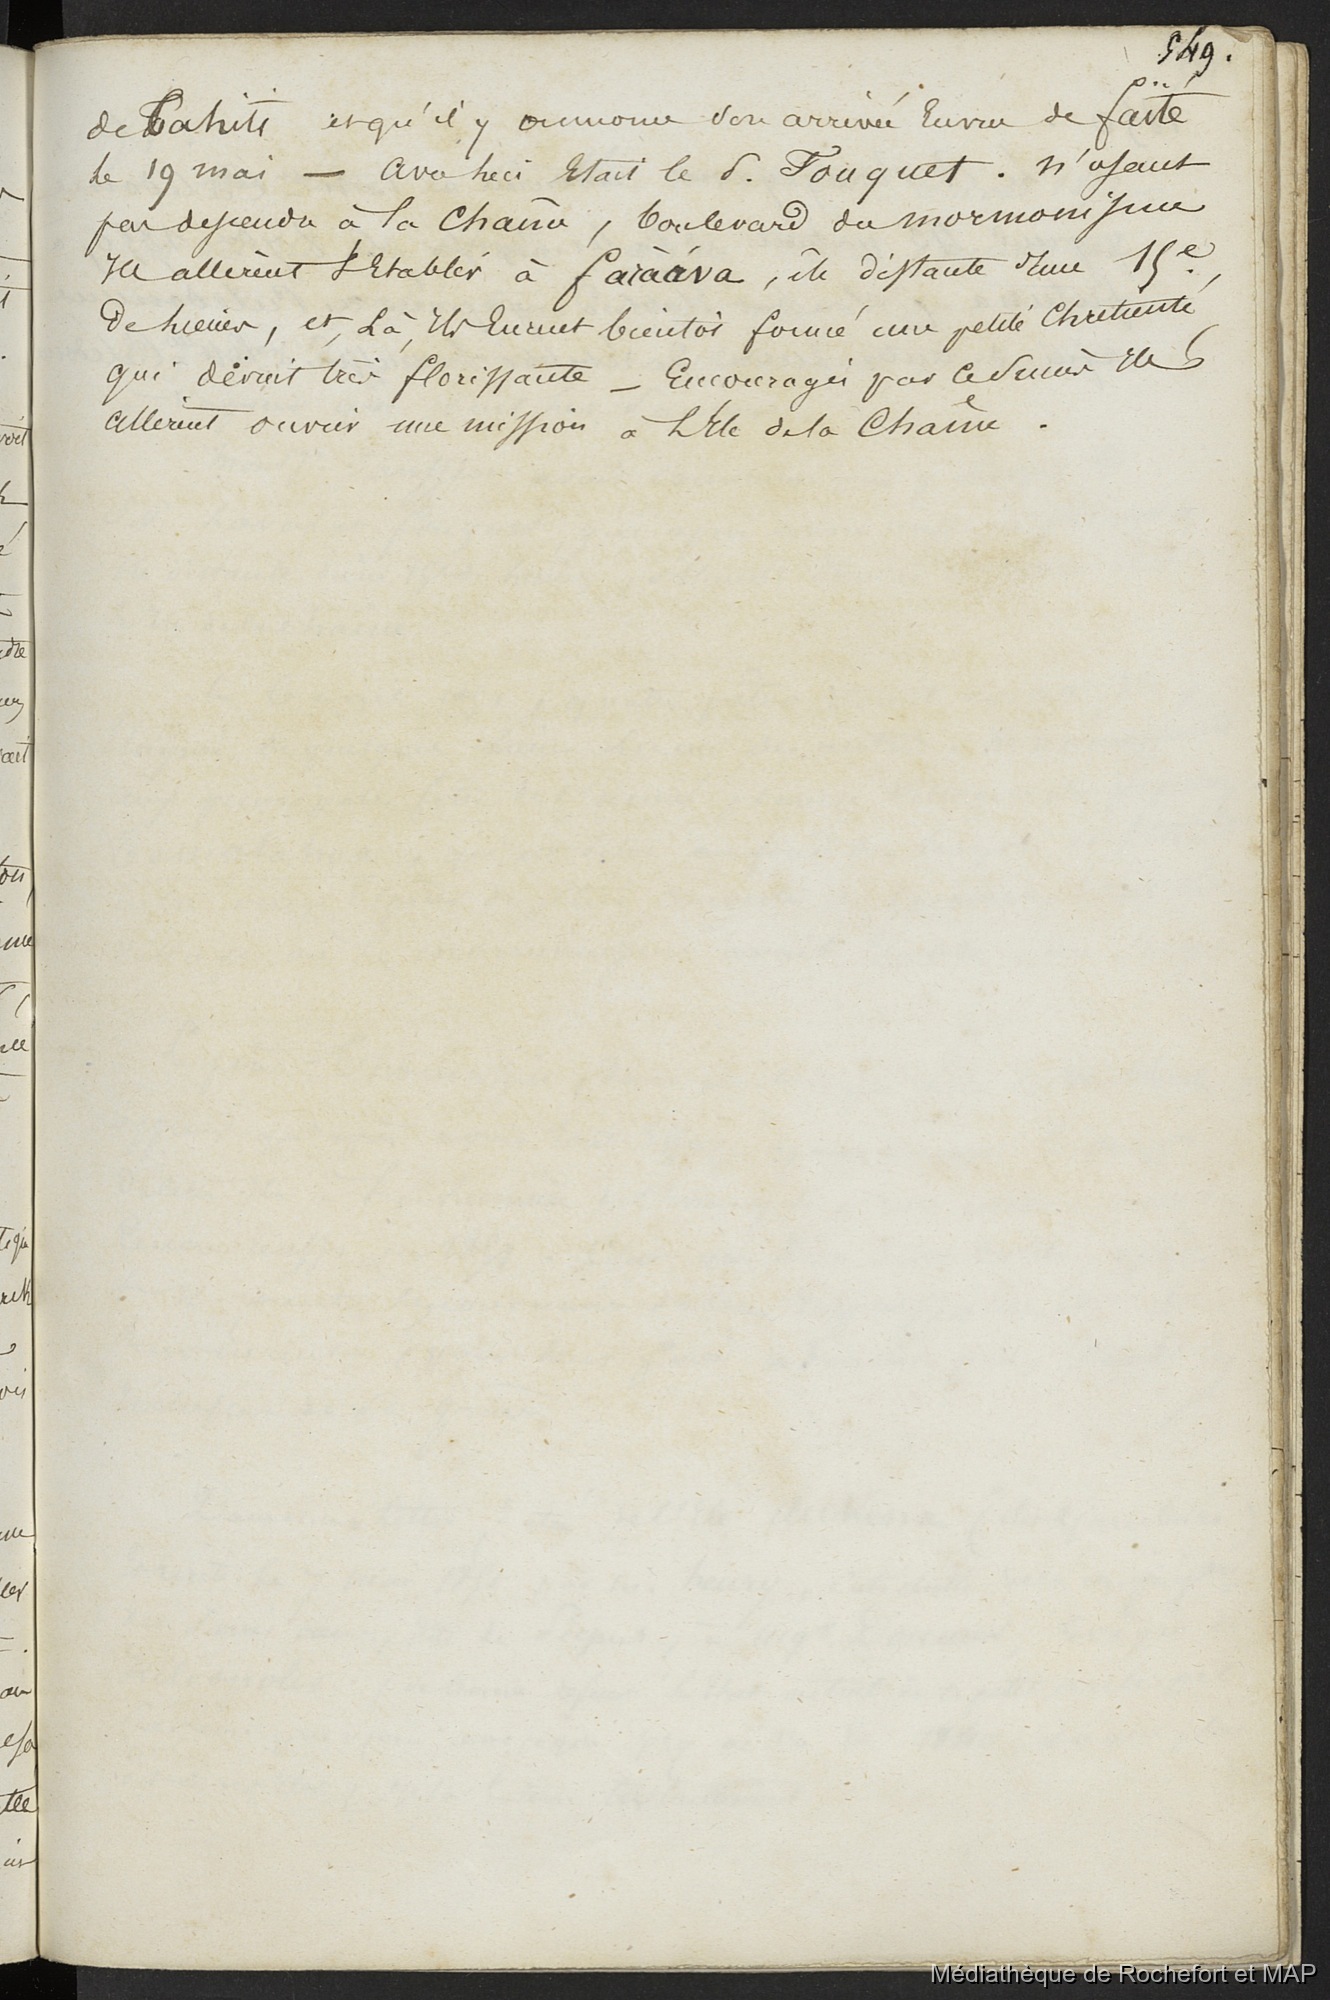 549.
de Tahiti et qu'il y annonce son arrivée En vue de faïté
le 19 mai — Avec lui Etait le S. Fouquet. N'osant
pas descendre à la Chaîne, boulevard du mormonisme
Ils allèrent s'Etablir à faraàva, île distante d'une 15e.
de lieues, et, Là, Ils Eurent bientôt formé une petite Chretienté
qui dévint très florissante — Encouragés par ce Succès Ils
allèrent ouvrir une mission à L'Ile de la Chaîne.
Médiathèque de Rochefort et MAP